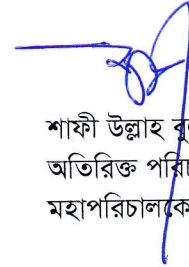 শাফী উল্লাহ
অতিরিক্ত
মহাপরিচালকে